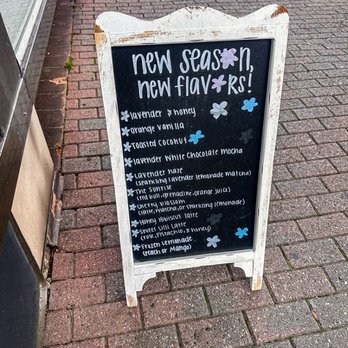 new season,
new flavors!
lavender & honey
orange vanilla
Toasted Coconut
lavender white chocolate mocha
Lavender haze
(sparkling lavender lemonade matcha)
The Sunrise
(red bull, grenadine, orange juice)
Cherry Blossom
(latte, matcha, or sparkling lemonade)
Honey hibiscus latte
Sweet Lili Latte
(rose, pistachio, & honey)
Frozen Lemonade
(Peach or Mango)